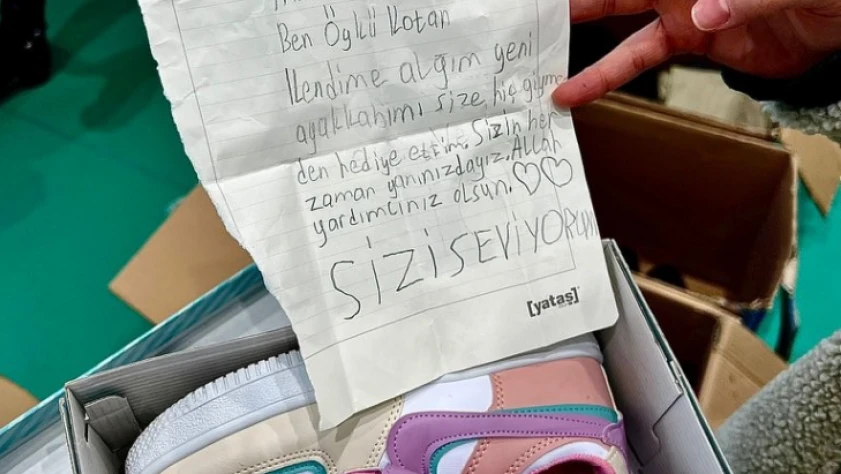 Ben Öykü Kotan
Kendime aldığım yeni
ayakkabımı size, hiç giyme
den hediye ettim. Sizin her
zaman yanınızdayız. Allah
yardımcınız olsun. ♡♡
SİZİ SEVİYORUM
[yataş]